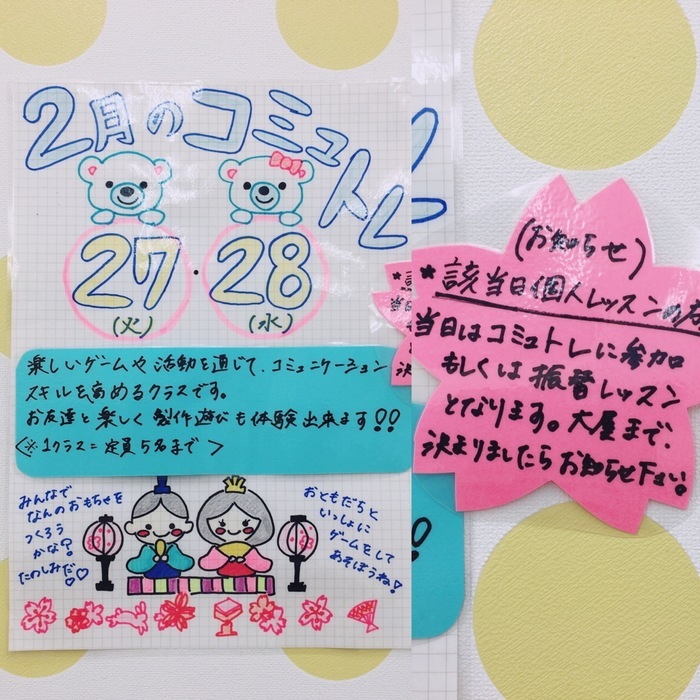 2月のコミュトレ
27・28
(火) (水)
楽しいゲームや活動を通じて、コミュニケーション
スキルを高めるクラスです。
お友達と楽しく製作遊びも体験出来ます!!
<※1クラス=定員5名まで>
みんなで
なんのおもちゃを
つくろう
かな?
たのしみだ♡♡
おともだちと
いっしょに
ゲームをして
あそぼうね!
(お知らせ)
*該当日個人レッスンの方
当日はコミュトレに参加
もしくは振替レッスン
となります。大屋まで、
決まりましたらお知らせ下さい。